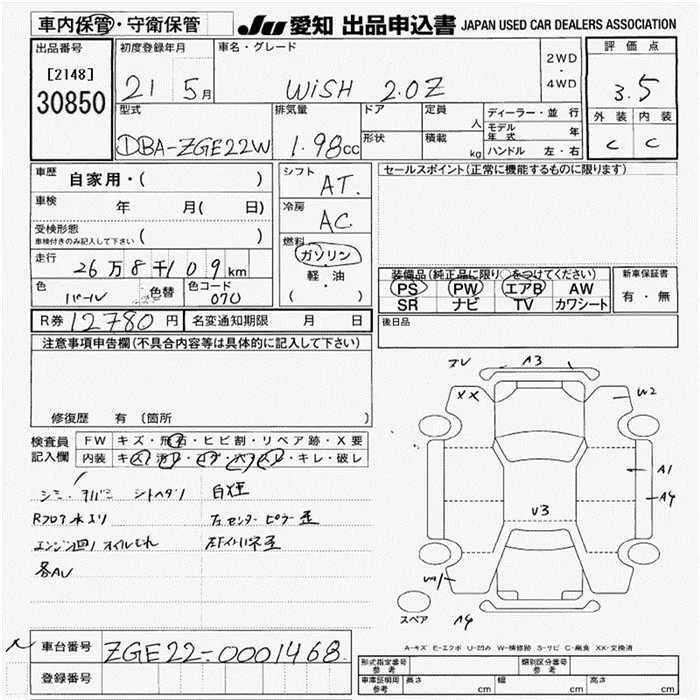 車内保管・守衛保管
JU 愛知 出品申込書 JAPAN USED CAR DEALERS ASSOCIATION
出品番号
[2148]
30850
初度登録年月
21 5月
車名・グレード
WiSH 2.0Z
2WD
・
4WD
評価点
3.5
外装 内装
C C
型式
DBA-ZGE22W
排気量
1.98cc
ドア
形状
定員
人
積載
kg
ディーラー・並行
モデル年式 年
ハンドル 左・右
車歴
自家用・( )
車検 年 月( 日)
受検形態
車検付きのみ記入して下さい ( )
走行
26万8千109km
色
パール
色替
色コード
070
シフト
AT.
冷房
AC
燃料
ガソリン
軽・油
( )
セールスポイント(正常に機能するものに限ります)
装備品(純正品に限り○をつけてください)
PS PW エアB AW
SR ナビ TV カワシート
新車保証書
有・無
R券 12780円
名変通知期限 月 日
後日品
注意事項申告欄(不具合内容等は具体的に記入して下さい)
修復歴 有 (箇所 )
検査員
記入欄
FW キズ・飛石・ヒビ割・リペア跡・X要
内装 キズ・汚れ・ キレ・破レ
シミ・
Rフロア
エンジン廻り オイルもれ
各AU
左センターピラー歪
A3
XX
W2
A1
A4
U3
A4
スペア
A-キズ E-エクボ U-凹み W-補修跡 S-サビ C-腐食 XX-交換済
車台番号
ZGE22-0001468
登録番号
形式指定番号
参考
類別区分番号
参考
車庫証明用
参考
長さ cm
幅 cm
高さ cm